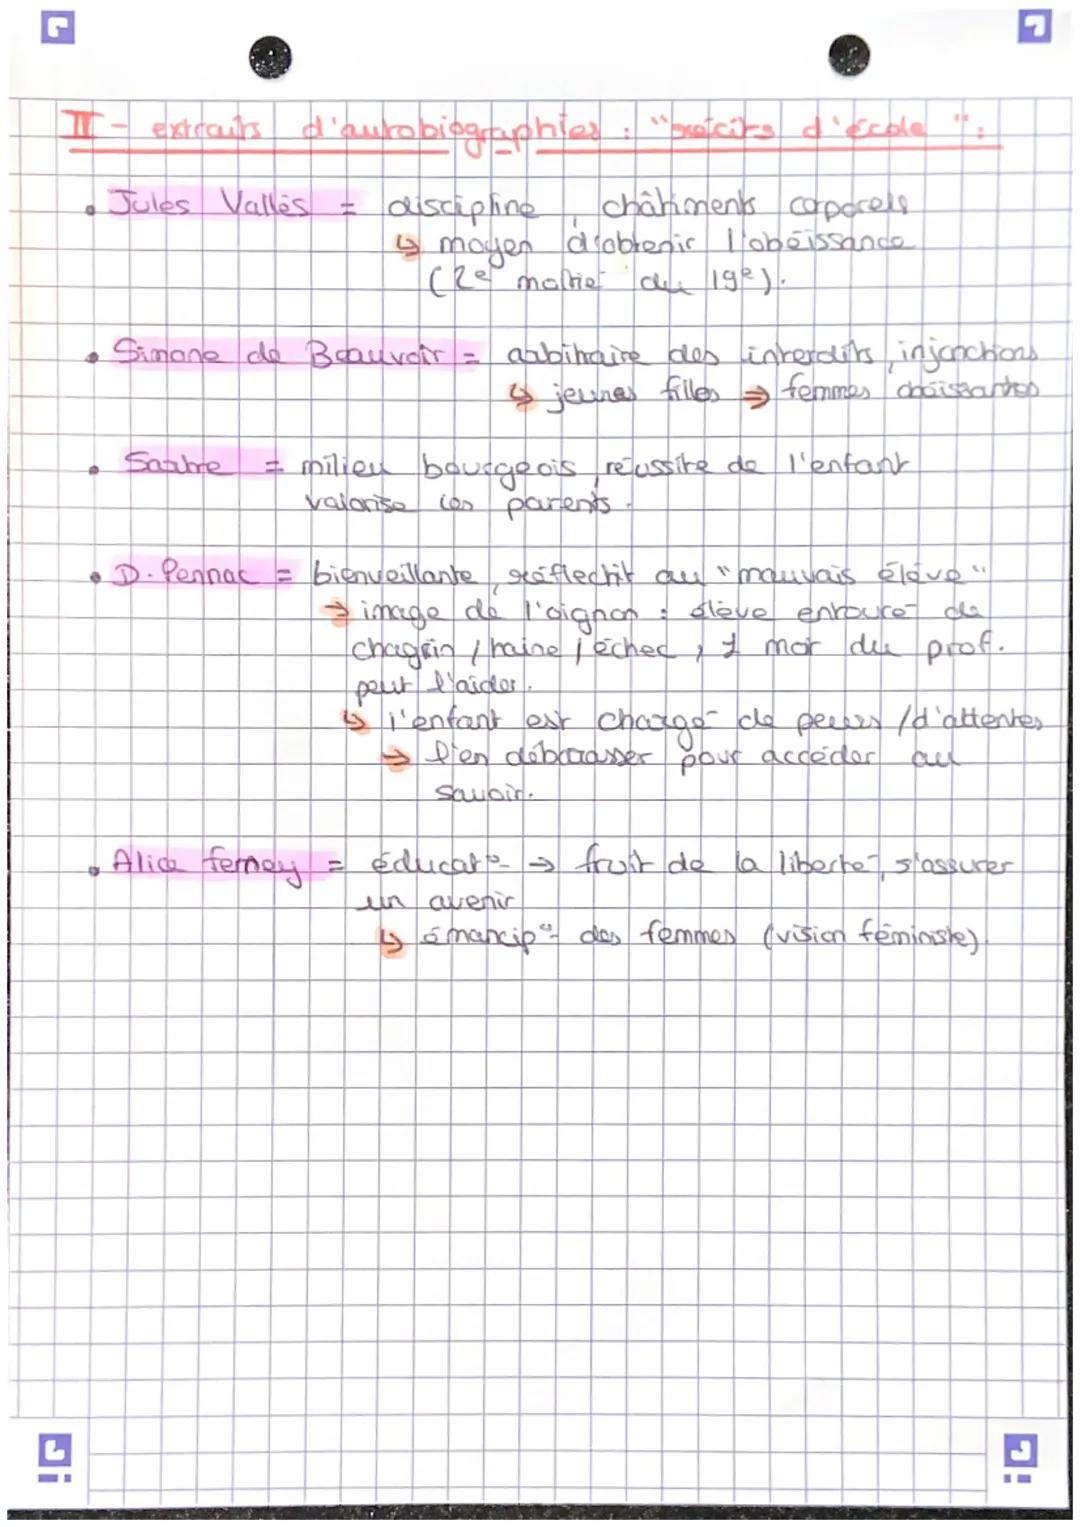 II - extraits d'autobiographies : "récits d'école" :
• Jules Vallès = discipline, châtiments corporels
↳ moyen d'obtenir l'obéissance
(2e moitié du 19e).
• Simone de Beauvoir = arbitraire des interdits, injonctions
↳ jeunes filles ⇒ femmes obéissantes
• Sartre = milieu bourgeois, réussite de l'enfant
valorise les parents.
• D. Pennac = bienveillante, réflechit au "mauvais élève"
→ image de l'oignon : élève entouré de
chagrin / haine / échec, 1 mot du prof.
peut l'aider.
↳ l'enfant est chargé de peurs / d'attentes
→ l'en débarasser pour accéder au
savoir.
• Alice ferney = éducat° → fruit de la liberté, s'assurer
un avenir
↳ émancip° des femmes (vision féministe).